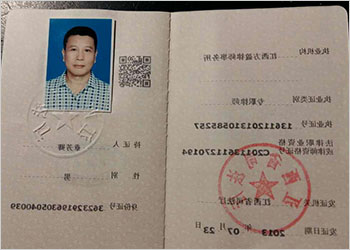 执业机构 江西
律师事务所
执业证类别 专职律师
执业证号 13611201310585257
法律职业资格
或律师资格证号 C20113611270194
发证机关 江西省司法厅
发证日期 2013 年 07 月 23 日
持证人
性别 男
身份证号 362329196305040039